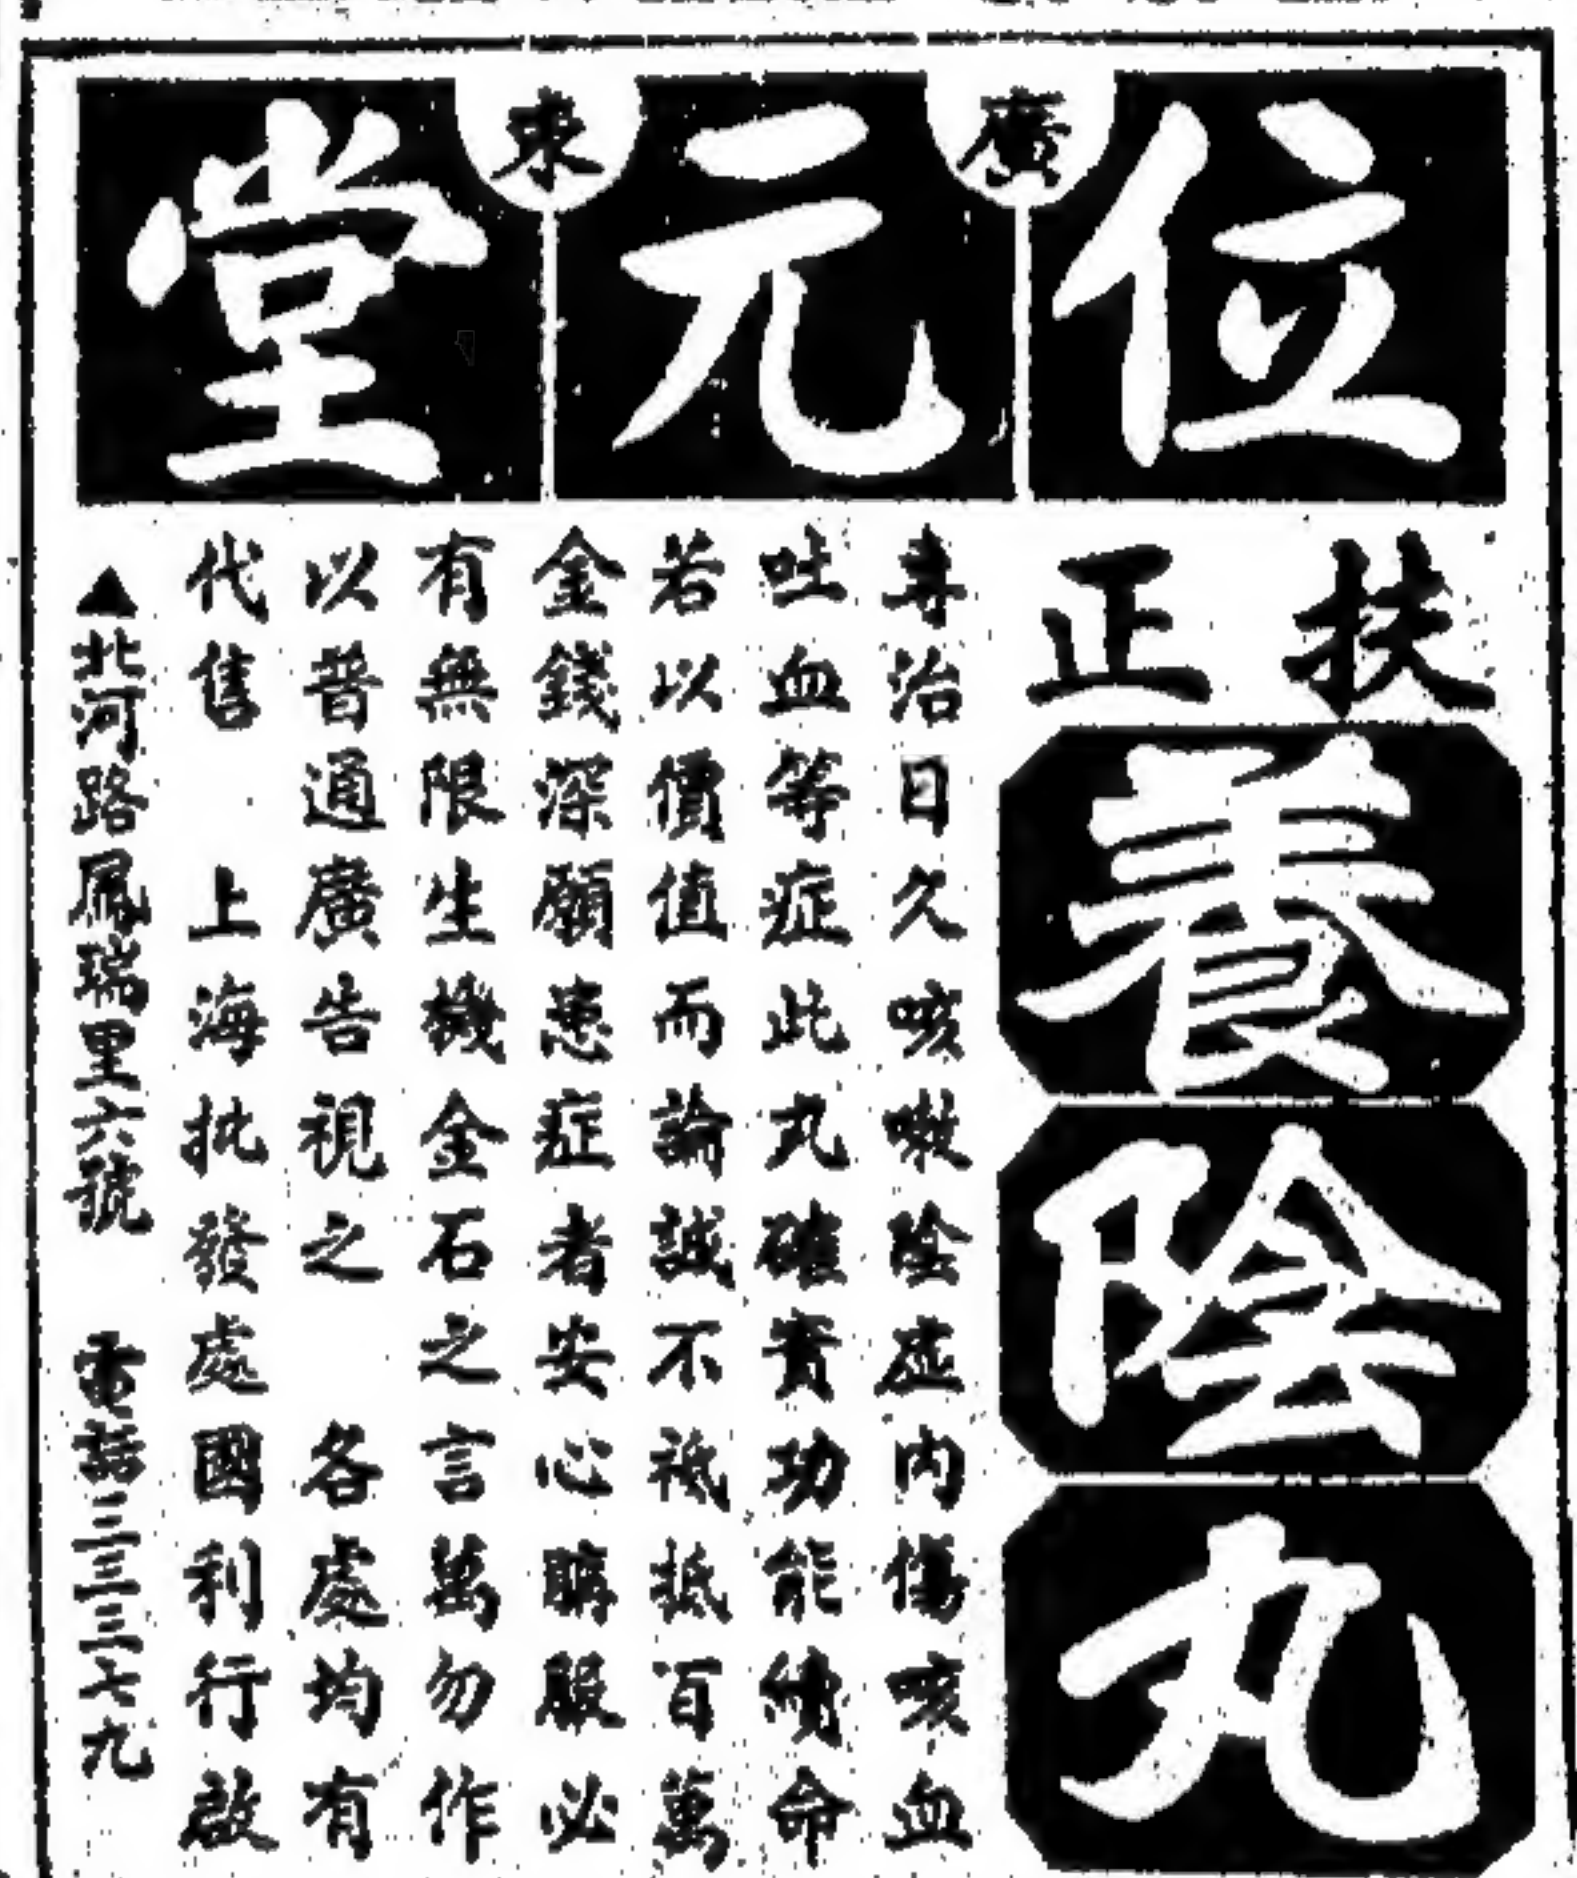 廣東
位元堂
扶正
養陰丸
專治日久咳嗽陰虛內傷咳血
吐血等症此丸確實功能續命
若以價值而論誠不祗抵百萬
金錢深願患症者安心購服必
有無限生機金石之言萬勿作
以普通廣告視之 各處均有
代售 上海批發處國利行啟
▲北河路鳳瑞里六號 電話三三三七九